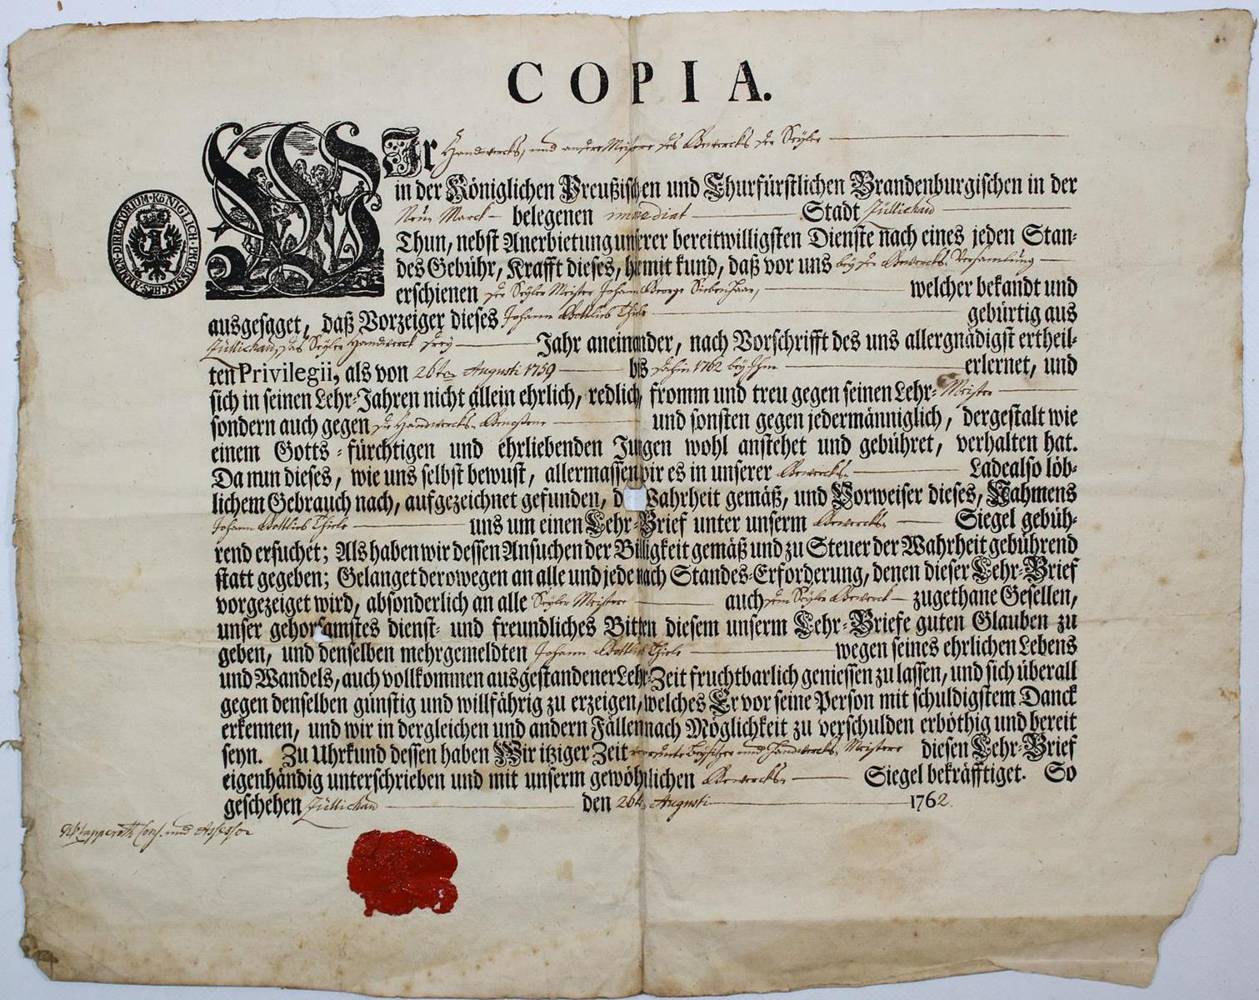 COPIA.
Wir Handwercks, und andere Meistere des Gewercks der Seyler
in der Königlichen Preußischen und Churfürstlichen Brandenburgischen in der
Neu Marck belegenen immediat Stadt Züllichau
Thun, nebst Anerbietung unserer bereitwilligsten Dienste nach eines jeden Stan-
des Gebühr, Krafft dieses, hiemit kund, daß vor uns bey der Gewercks-Versamlung
erschienen der Seyler Meister Johann George Siebenhaar, welcher bekandt und
ausgesaget, daß Vorzeiger dieses Johann Gottlieb Thiele gebürtig aus
Züllichau, das Seyler Handwerck drey Jahr aneinander, nach Vorschrifft des uns allergnädigst ertheil-
ten Privilegii, als von 26ten Augusti 1759 bis dahin 1762 bey Ihm erlernet, und
sich in seinen Lehr-Jahren nicht allein ehrlich, redlich, fromm und treu gegen seinen Lehr-Meister
sondern auch gegen die Handwercks-Genossene und sonsten gegen jedermänniglich, dergestalt wie
einem Gotts-fürchtigen und ehrliebenden Jungen wohl anstehet und gebühret, verhalten hat.
Da nun dieses, wie uns selbst bewust, allermassen wir es in unserer Gewercks- Lade also löb-
lichem Gebrauch nach, aufgezeichnet gefunden, der Wahrheit gemäß, und Vorweiser dieses, Nahmens
Johann Gottlieb Thiele uns um einen Lehr-Brief unter unserm Gewercks- Siegel gebüh-
rend ersuchet; Als haben wir dessen Ansuchen der Billigkeit gemäß und zu Steuer der Wahrheit gebührend
statt gegeben; Gelanget derowegen an alle und jede nach Standes-Erforderung, denen dieser Lehr-Brief
vorgezeiget wird, absonderlich an alle Seyler Meistere auch dem Seyler Gewerck zugethane Gesellen,
unser gehorsamstes dienst- und freundliches Bitten diesem unserm Lehr-Briefe guten Glauben zu
geben, und denselben mehrgemeldten Johann Gottlieb Thiele wegen seines ehrlichen Lebens
und Wandels, auch vollkommen ausgestandener Lehr-Zeit fruchtbarlich geniessen zu lassen, und sich überall
gegen denselben günstig und willfährig zu erzeigen, welches Er vor seine Person mit schuldigstem Danck
erkennen, und wir in dergleichen und andern Fällen nach Möglichkeit zu verschulden erböthig und bereit
seyn. Zu Uhrkund dessen haben Wir itziger Zeit Beysitzer und Handwercks-Meistere diesen Lehr-Brief
eigenhändig unterschrieben und mit unserm gewöhnlichen Gewercks- Siegel bekräfftiget. So
geschehen Züllichau den 26t. Augusti 1762.
Cons. und Assessor